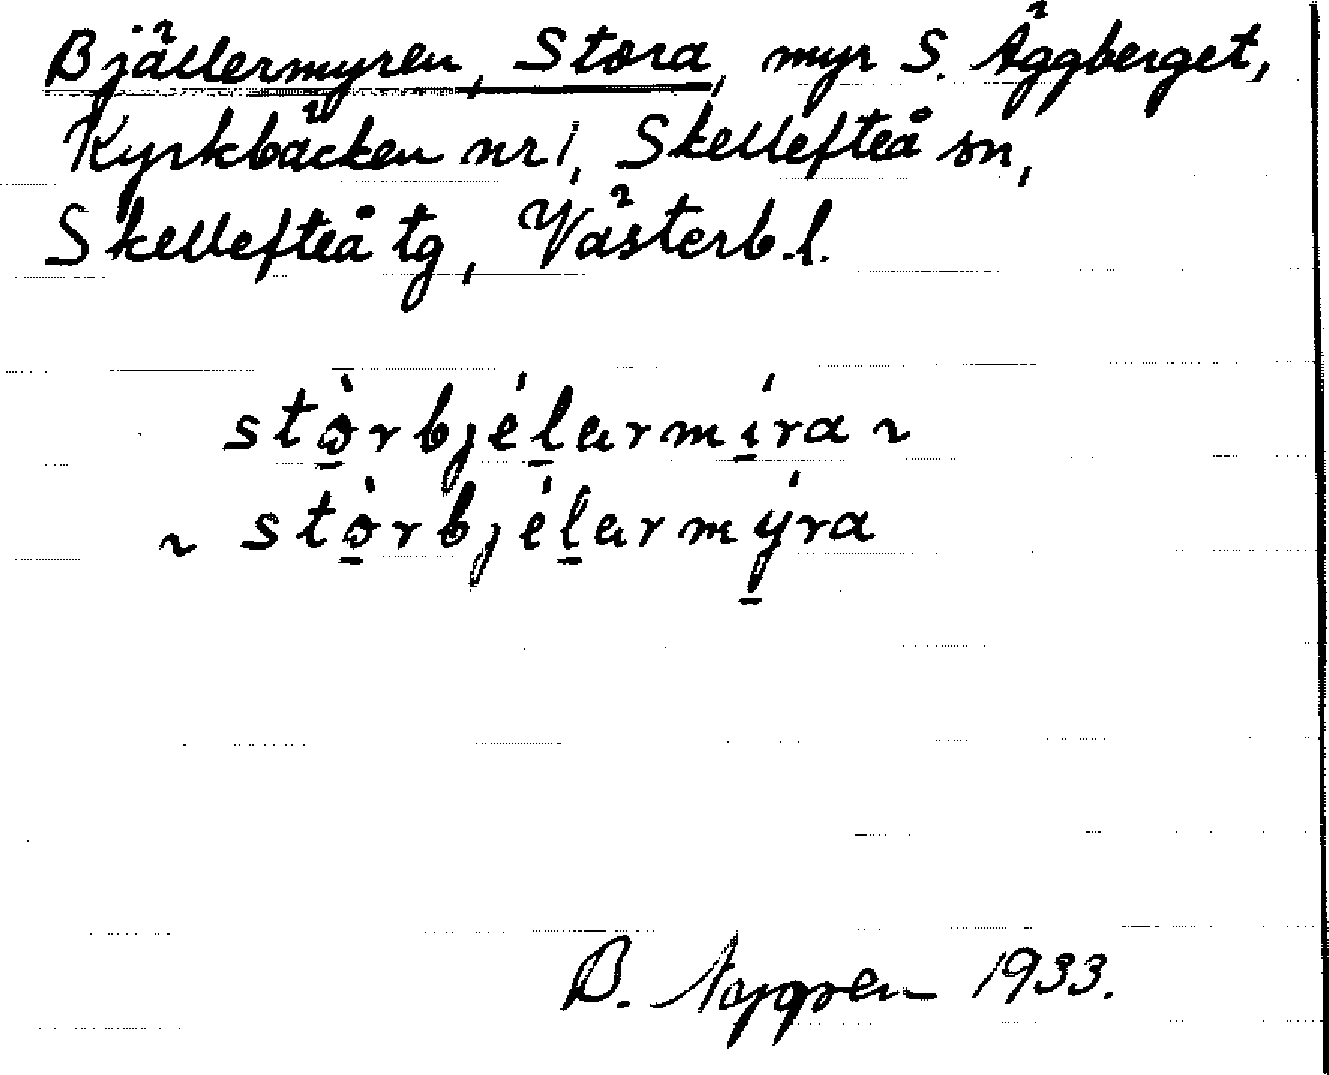 Bjällermyren, Stora, myr S. Äggberget,
Kyrkbäcken nr 1, Skellefteå sn,
Skellefteå tg, Västerb. l.
stò̱rbjél̠armí̱ra ~
~ stò̱rbjél̠armý̱ra
B. 1933.